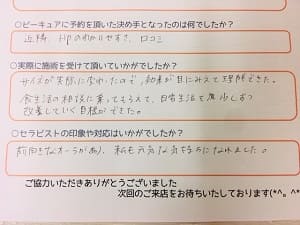 ○ピーキュアに予約を頂いた決め手となったのは何でしたか？
近隣 HPのわかりやすさ、口コミ
○実際に施術を受けて頂いていかがでしたか？
サイズが実際に変わったので、効果が目にみえて理解できた。
食生活の相談に乗ってもらえて、日常生活を少しずつ
改善していく目標ができた。
○セラピストの印象や対応はいかがでしたか？
前向きなオーラがあり、私も元気な気持ちになれました。
ご協力いただきありがとうございました
次回のご来店をお待ちいたしております(*^。^*